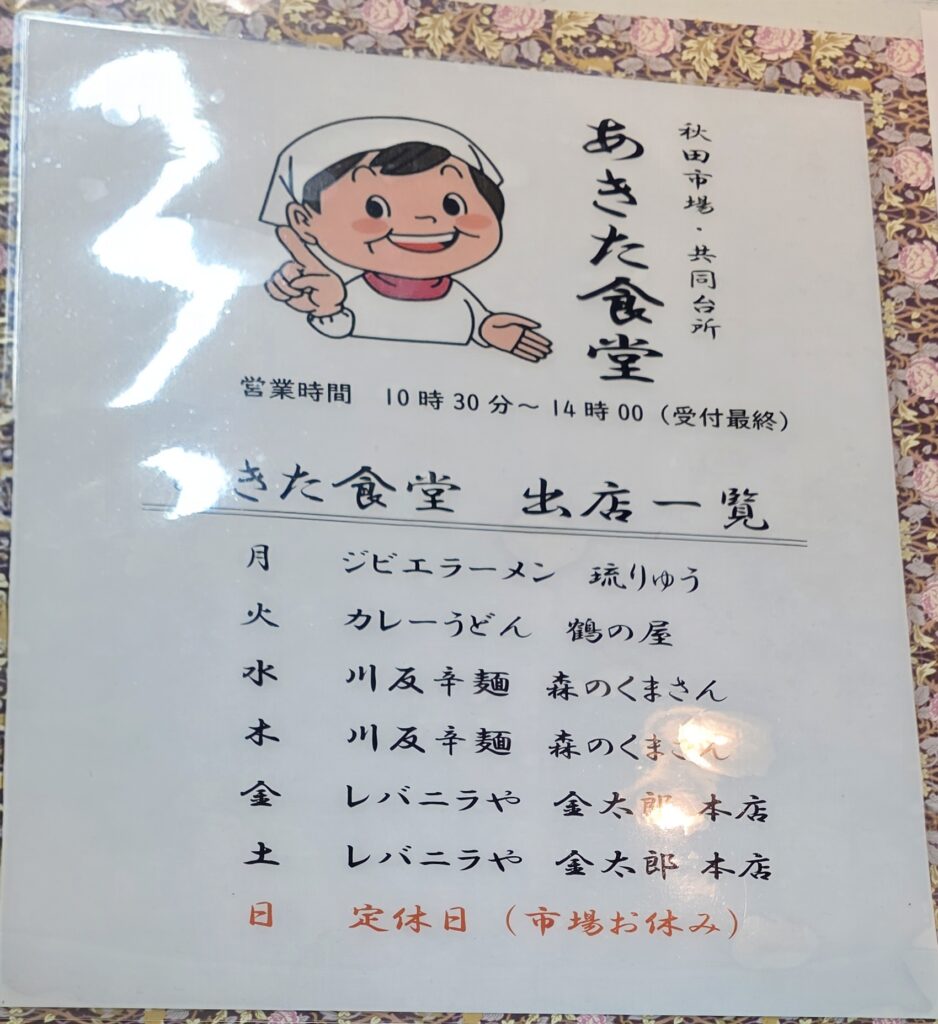 秋田市場・共同台所
あきた食堂
営業時間 10時30分～14時00（受付最終）
きた食堂 出店一覧
月 ジビエラーメン 琉りゅう
火 カレーうどん 鶴の屋
水 川反辛麺 森のくまさん
木 川反辛麺 森のくまさん
金 レバニラや 金太郎 本店
土 レバニラや 金太郎 本店
日 定休日（市場お休み）